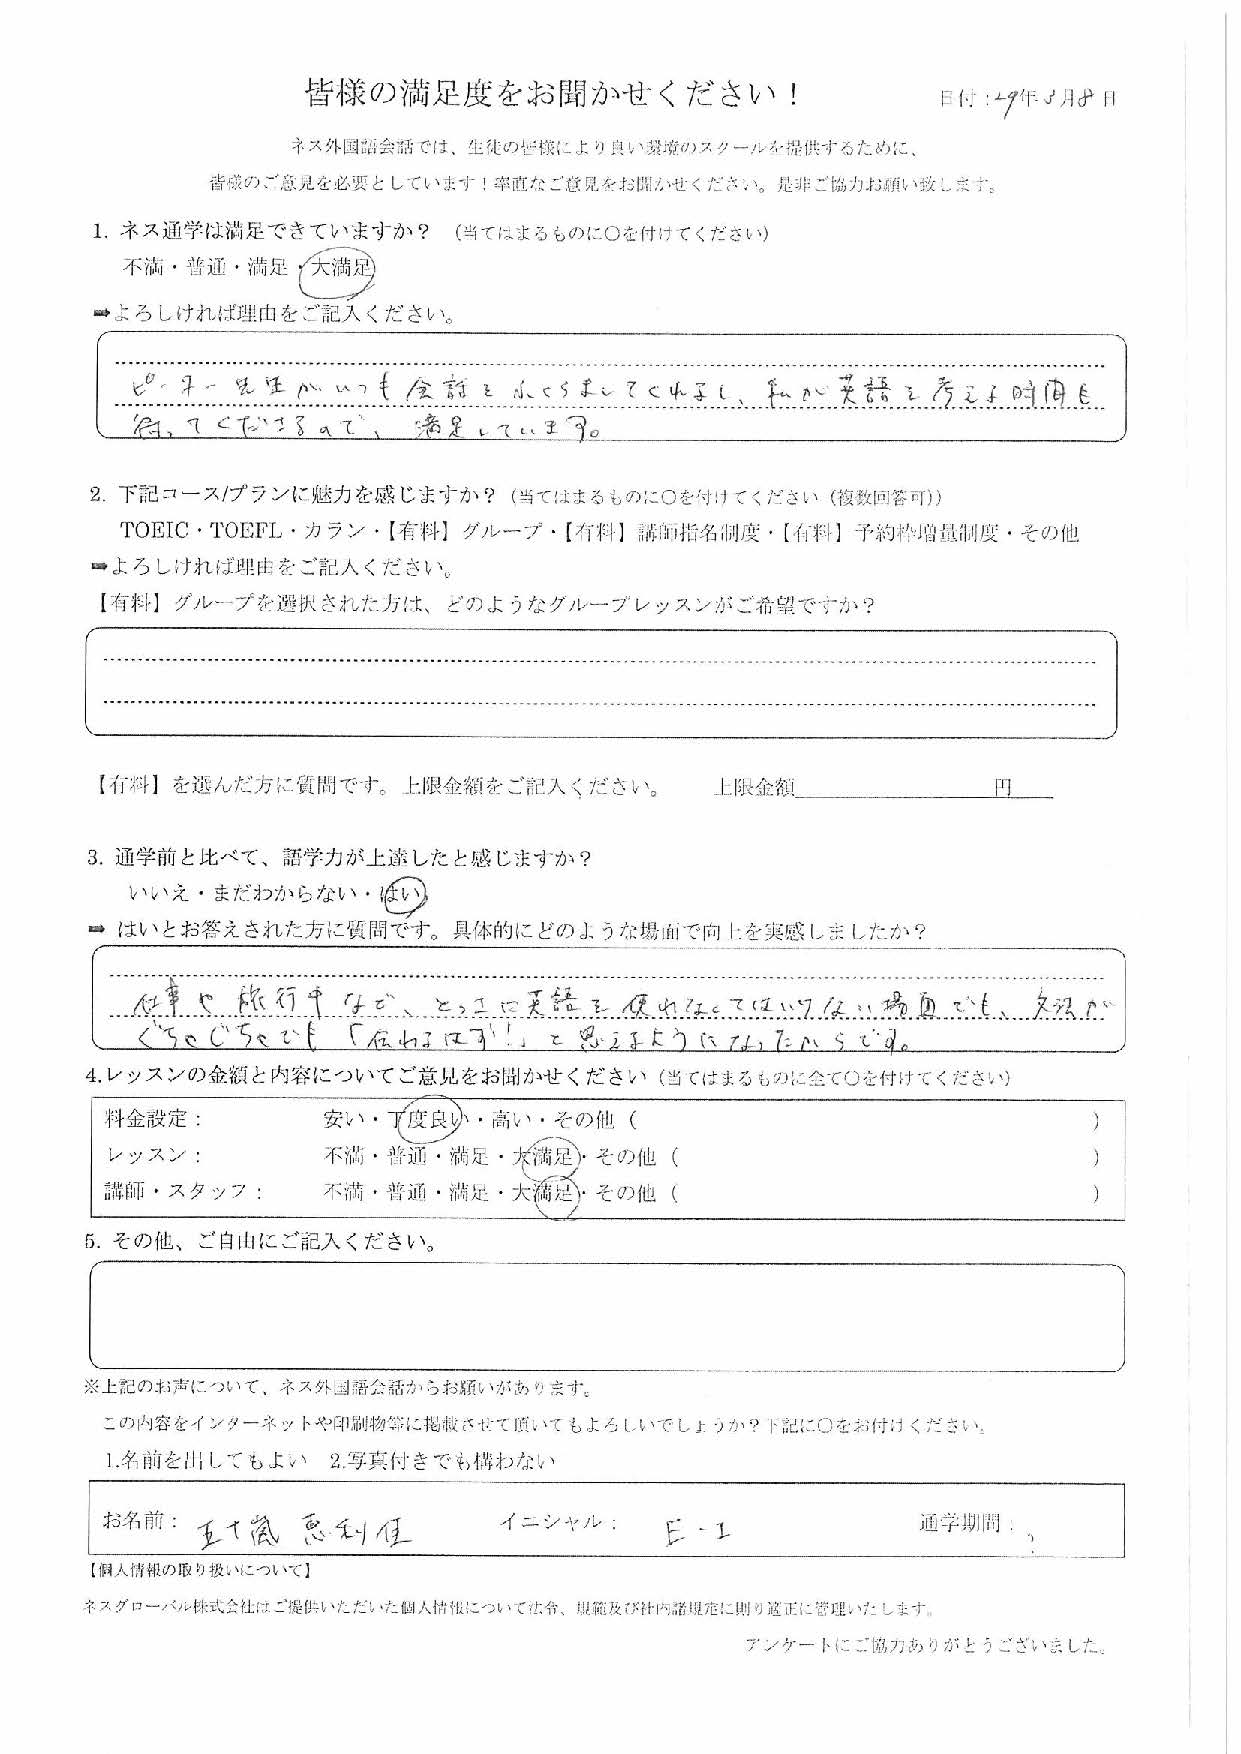 皆様の満足度をお聞かせください！
日付：29年3月8日
ネス外国語会話では、生徒の皆様により良い環境のスクールを提供するために、
皆様のご意見を必要としています！率直なご意見をお聞かせください。是非ご協力お願い致します。
1. ネス通学は満足できていますか？ （当てはまるものに〇を付けてください）
不満・普通・満足・大満足
➡よろしければ理由をご記入ください。
ピーター先生がいつも会話をふくらましてくれるし、私が英語を考える時間も
待ってくださるので、満足しています。
2. 下記コース/プランに魅力を感じますか？（当てはまるものに〇を付けてください（複数回答可））
TOEIC・TOEFL・カラン・【有料】グループ・【有料】講師指名制度・【有料】予約枠増量制度・その他
➡よろしければ理由をご記入ください。
【有料】グループを選択された方は、どのようなグループレッスンがご希望ですか？
【有料】を選んだ方に質問です。上限金額をご記入ください。 上限金額 円
3. 通学前と比べて、語学力が上達したと感じますか？
いいえ・まだわからない・はい
➡ はいとお答えされた方に質問です。具体的にどのような場面で向上を実感しましたか？
仕事や旅行中などで、とっさに英語を使わなくてはいけない場面でも、文法が
ぐちゃぐちゃでも「伝わるはず！」と思えるようになったからです。
4.レッスンの金額と内容についてご意見をお聞かせください（当てはまるものに全て〇を付けてください）
料金設定： 安い・丁度良い・高い・その他（ ）
レッスン： 不満・普通・満足・大満足・その他（ ）
講師・スタッフ： 不満・普通・満足・大満足・その他（ ）
5. その他、ご自由にご記入ください。
※上記のお声について、ネス外国語会話からお願いがあります。
この内容をインターネットや印刷物等に掲載させて頂いてもよろしいでしょうか？下記に〇をお付けください。
1.名前を出してもよい 2.写真付きでも構わない
お名前： 五十嵐 恵利佳 イニシャル： E・I 通学期間：
【個人情報の取り扱いについて】
ネスグローバル株式会社はご提供いただいた個人情報について法令、規範及び社内諸規定に則り適正に管理いたします。
アンケートにご協力ありがとうございました。